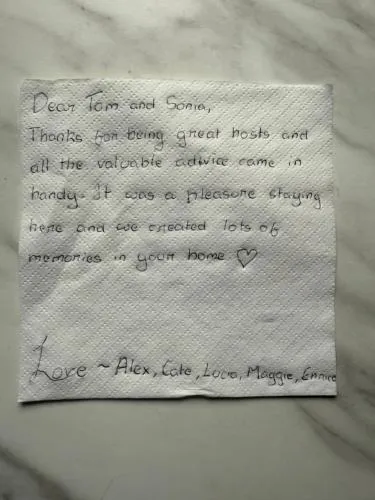 Dear Tom and Sonia,
Thanks for being great hosts and
all the valuable advice came in
handy. It was a pleasure staying
here and we created lots of
memories in your home ♡
Love ~ Alex, Cate, Luca, Maggie, Enrico